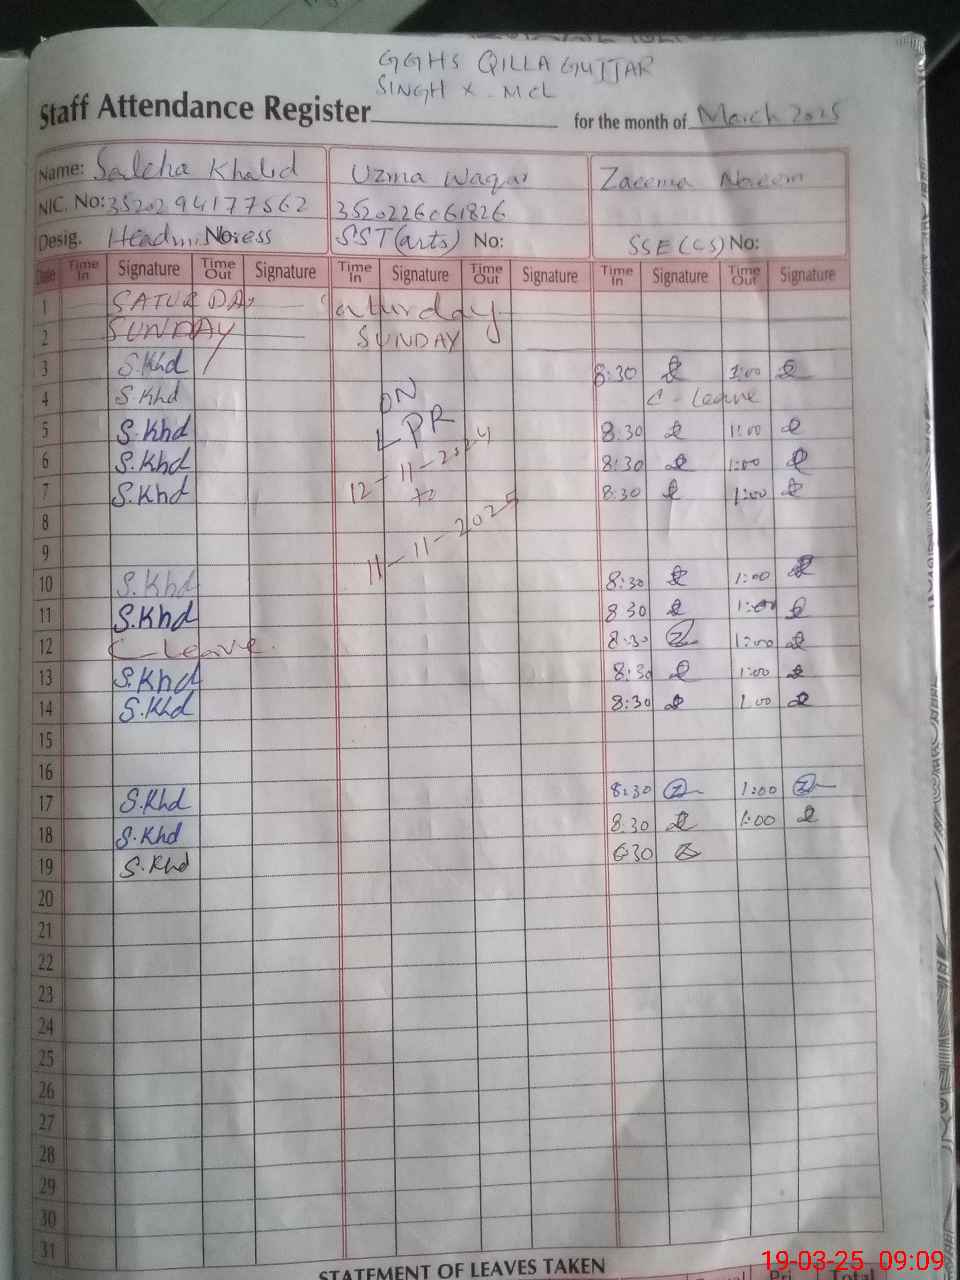 GGHS QILLA GUJJAR
SINGH X. MCL
Staff Attendance Register for the month of March 2025
Name: Saleha Khalid Uzma Waqar Zaeema Naeem
NIC. No: 3520294177562 3520226061826
Desig. Headmistress No: SST (arts) No: SSE (CS) No:
Date Time In Signature Time Out Signature Time In Signature Time Out Signature Time In Signature Time Out Signature
1 SATURDAY Saturday
2 SUNDAY SUNDAY
3 S.Khd 8:30 1:00
4 S.Khd ON C-Leave
5 S.Khd LPR 8:30 1:00
6 S.Khd 12-11-2024 8:30 1:00
7 S.Khd to 8:30 1:00
8 11-11-2025
9
10 S.Khd 8:30 1:00
11 S.Khd 8:30 1:00
12 C-Leave. 8:30 1:00
13 S.Khd 8:30 1:00
14 S.Khd 8:30 1:00
15
16
17 S.Khd 8:30 1:00
18 S.Khd 8:30 1:00
19 S.Khd
20
21
22
23
24
25
26
27
28
29
30
31
STATEMENT OF LEAVES TAKEN
Total
19-03-25 09:09